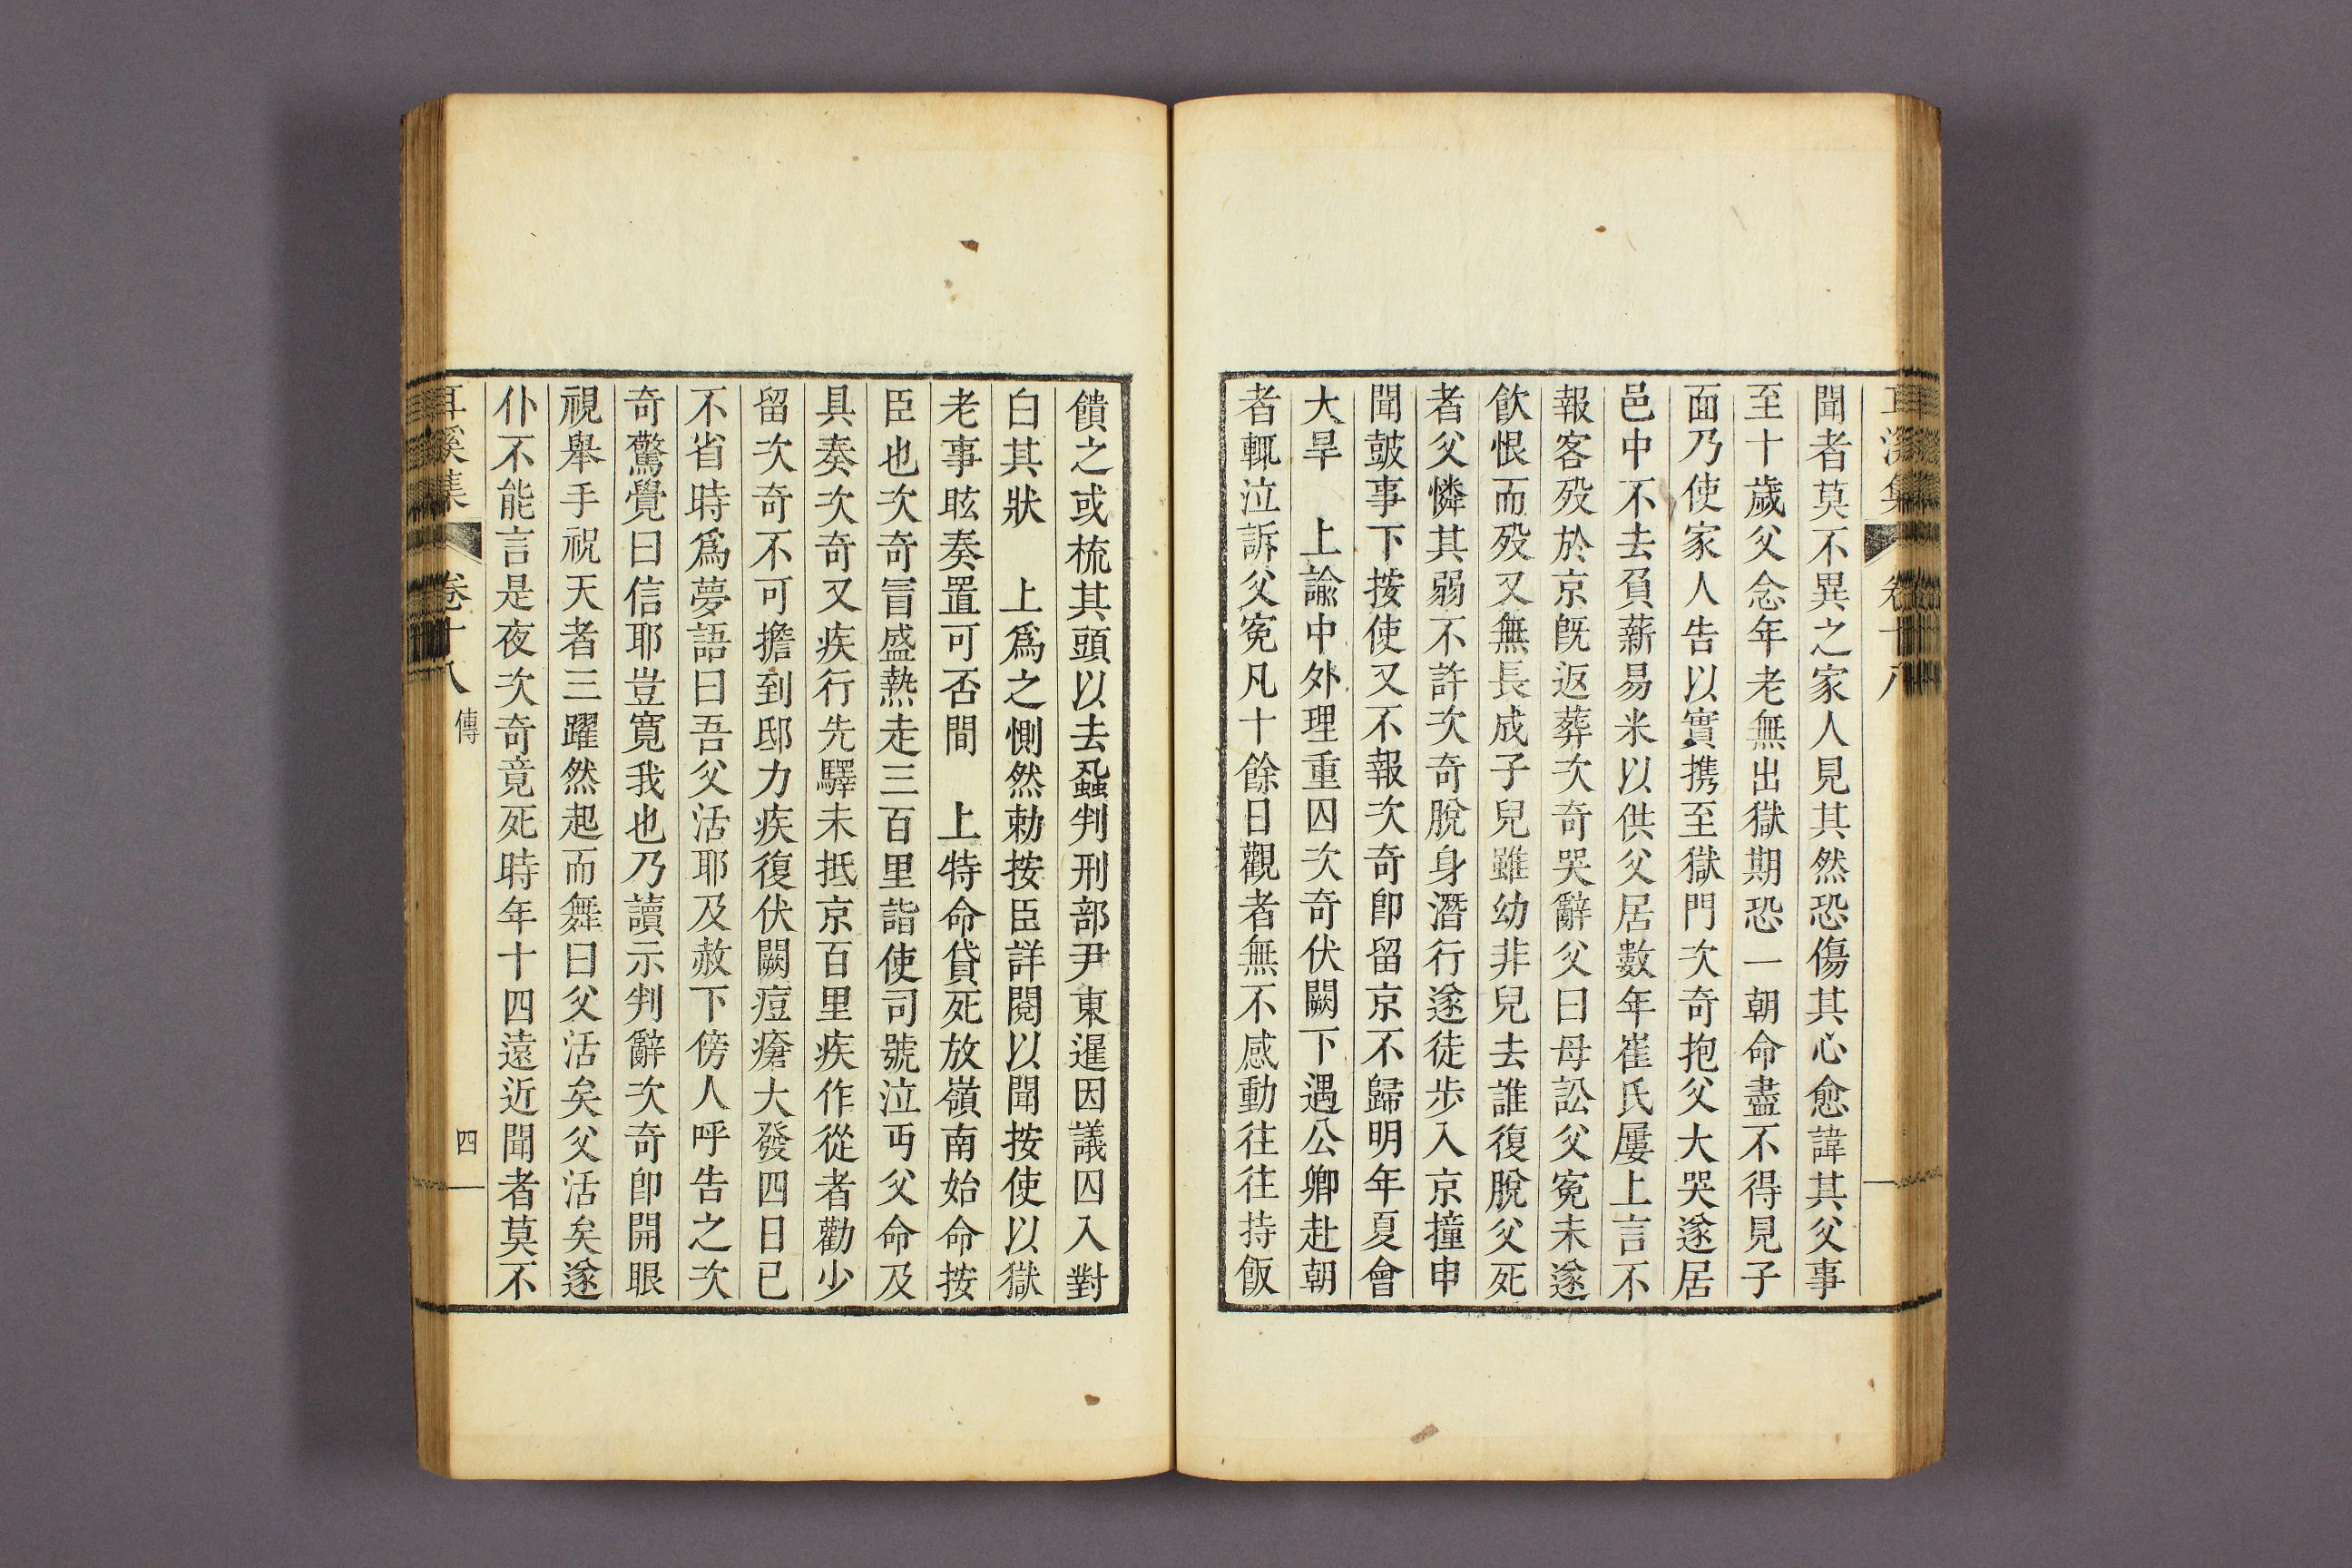 聞者莫不異之家人見其然恐傷其心愈諱其父事
至十歲父念年老無出獄期恐一朝命盡不得見子
面乃使家人告以實携至獄門次奇抱父大哭遂居
邑中不去負薪易米以供父居數年崔氏屢上言不
報客歿於京旣返葬次奇哭辭父曰母訟父寃未遂
飮恨而歿又無長成子兒雖幼非兒去誰復脫父死
者父憐其弱不許次奇脫身潛行遂徒步入京撞申
聞皷事下按使又不報次奇卽留京不歸明年夏會
大旱　上諭中外理重囚次奇伏闕下遇公卿赴朝
者輒泣訴父寃凡十餘日觀者無不感動往往持飯
饋之或梳其頭以去蝨判刑部尹東暹因議囚入對
白其狀　上爲之惻然勅按臣詳閱以聞按使以獄
老事眩奏置可否間　上特命貸死放嶺南始命按
臣也次奇冒盛熱走三百里詣使司號泣丐父命及
具奏次奇又疾行先驛未抵京百里疾作從者勸少
留次奇不可擔到邸力疾復伏闕痘瘡大發四日已
不省時爲夢語曰吾父活耶及赦下傍人呼告之次
奇驚覺曰信耶豈寬我也乃讀示判辭次奇卽開眼
視舉手祝天者三躍然起而舞曰父活矣父活矣遂
仆不能言是夜次奇竟死時年十四遠近聞者莫不
耳溪集　卷十八　傳　四